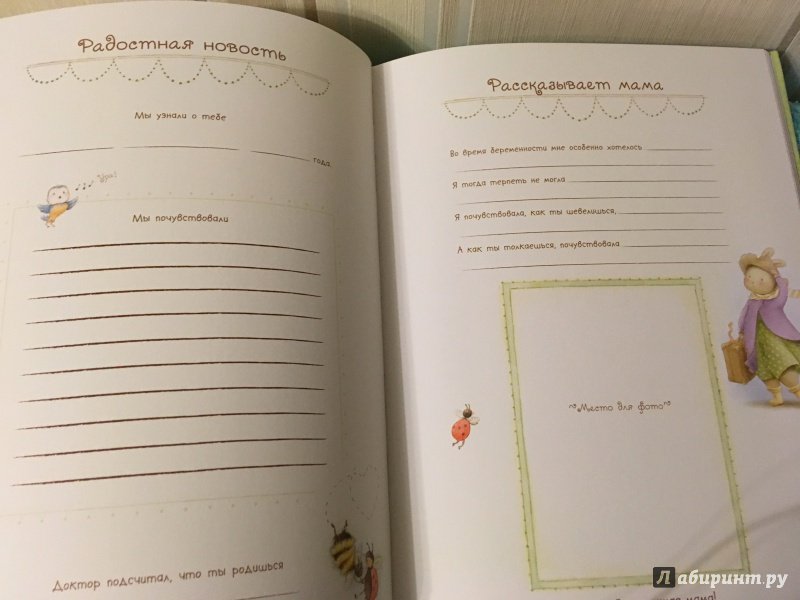 Радостная новость
Мы узнали о тебе
года.
Ура!
Мы почувствовали
Доктор подсчитал, что ты родишься
Рассказывает мама
Во время беременности мне особенно хотелось
Я тогда терпеть не могла
Я почувствовала, как ты шевелишься,
А как ты толкаешься, почувствовала
~Место для фото~
мама!
Лабиринт.ру